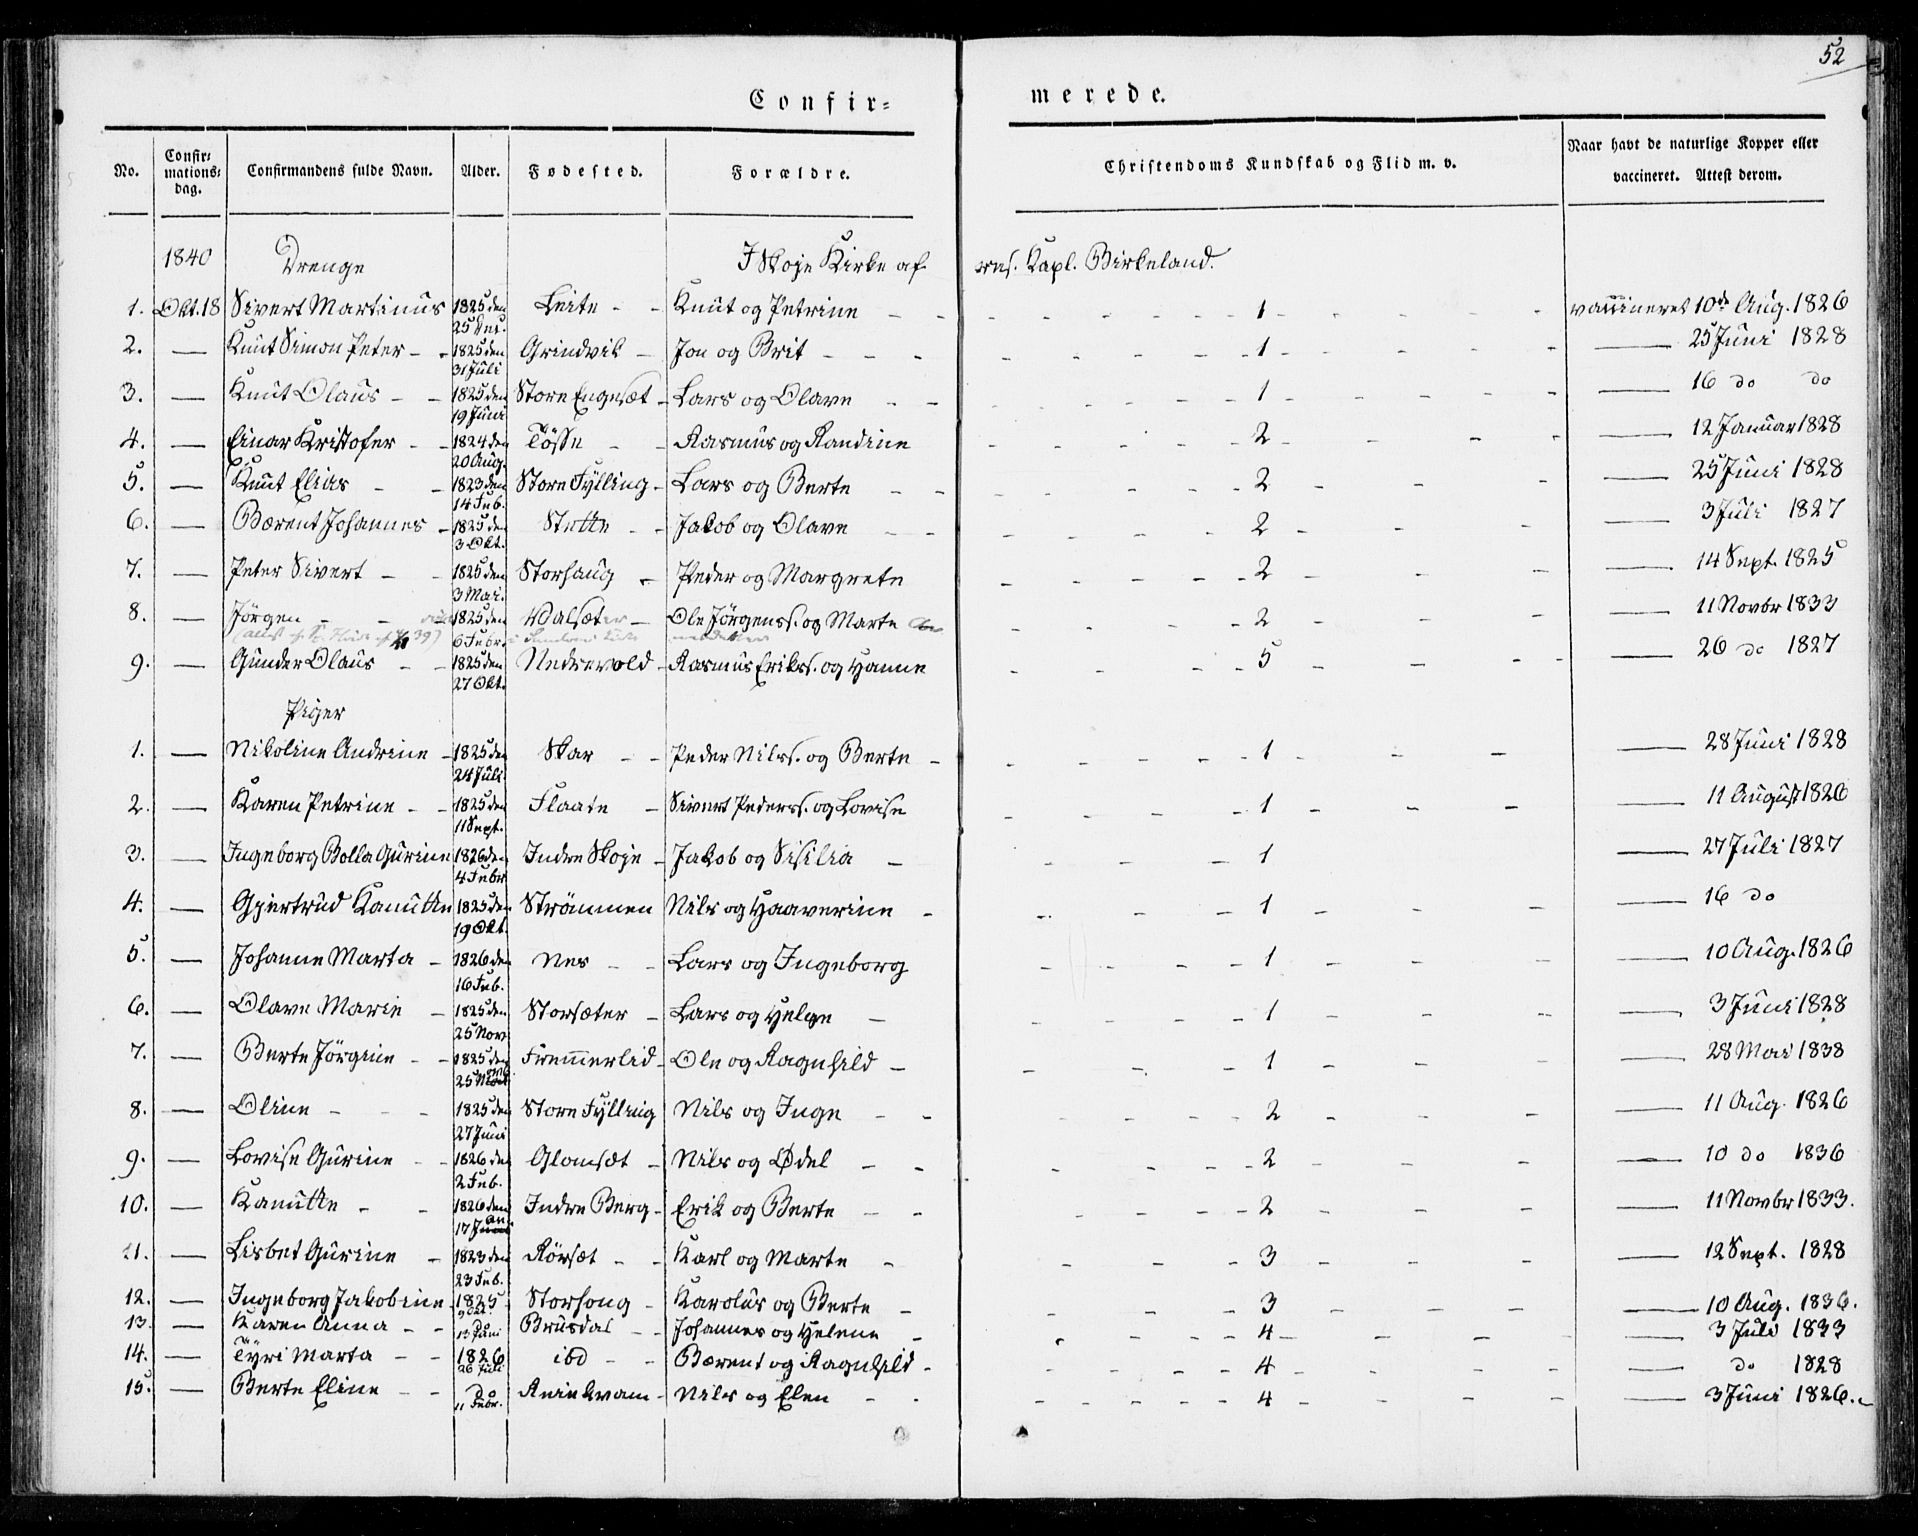 52
Confir= merede.
No. Confir=mations=dag. Confirmandens fulde Navn. Alder. Fødested. Forældre. Christendoms Kundskab og Flid m. v. Naar havt de naturlige Kopper eller vaccineret. Attest derom.
1840 Drenge I Skoje Kirke af res. Kapl. Birkeland.
1. Okt. 18 Sivert Martinus 1825 den 25 Leite Knut og Petrine 1 vaccineret 10de Aug. 1826
2. — Knut Simon Peter 1825 den 31 Juli Grindvik Jon og Brit 1 — 25 Juni 1828
3. — Knut Olaus 1825 den 19 Juni Store Engesæt Lars og Olave 1 — 16 do do
4. — Einar Kristofer 1824 den 20 Aug. Tösse Rasmus og Randine 2 — 12 Januar 1828
5. — Knut Elias 1823 den 14 Feb. Store Fylling Lars og Berte 2 — 25 Juni 1828
6. — Bærent Johannes 1825 den 3 Okt. Stette Jakob og Olave 2 — 3 Juli 1827
7. — Peter Sivert 1825 den 3 Mai. Storhaug Peder og Margrete 2 — 14 Sept. 1825
8. — Jörgen 1825 den 6 Febr. Valsæter Ole Jörgenss. og Marte 2 — 11 Novbr 1833
9. — Gunder Olaus 1825 den 27 Okt. Nedrevold Rasmus Erikss. og Hanne 5 — 26 do 1827
Piger
1. — Nikoline Andrine 1825 den 24 Juli Skar Peder Nilss. og Berte 1 — 28 Juni 1828
2. — Karen Petrine 1825 den 11 Sept. Flaate Sivert Pederss. og Lovise 1 — 11 August 1826
3. — Ingeborg Bolla Gurine 1826 den 4 Febr Indre Skoje Jakob og Sisilia 1 — 27 Juli 1827
4. — Gjertrud Kanutte 1825 den 19 Okt. Strömmen Nils og Haaverine 1 — 16 do
5. — Johanne Marta 1826 den 16 Feb. Nes Lars og Ingeborg 1 — 10 Aug. 1826
6. — Olave Marie 1825 den 25 Nov Storsæter Lars og Helge 1 — 3 Juni 1828
7. — Berte Jörgine 1825 den 25 Fremmerlid Ole og Ragnhild 1 — 28 Mai 1838
8. — Oline 1825 den 27 Juni Store Fylling Nils og Inge 2 — 11 Aug. 1826
9. — Lovise Gurine 1826 den 2 Feb. Glomsæt Nils og Ødel 2 — 10 do 1836
10. — Kanutte 1826 den 17 Jan Indre Berg Erik og Berte 2 — 11 Novbr 1833.
11. — Lisbet Gurine 1823 den 23 Feb. Rörsæt Karl og Marte 3 — 12 Sept. 1828
12. — Ingeborg Jakobine 1825 9 Okt. Storhong Karolus og Berte 3 — 10 Aug. 1836.
13. — Karen Anna do 13 Juni Brusdal Johannes og Helene 4 — 3 Juli 1833
14. — Tyri Marta 1826 26 Juli ibd Bærent og Ragnhild 4 — do 1828
15. — Berte Eline do 11 Febr. Reinkvam Nils og Elen 4 — 3 Juni 1826.